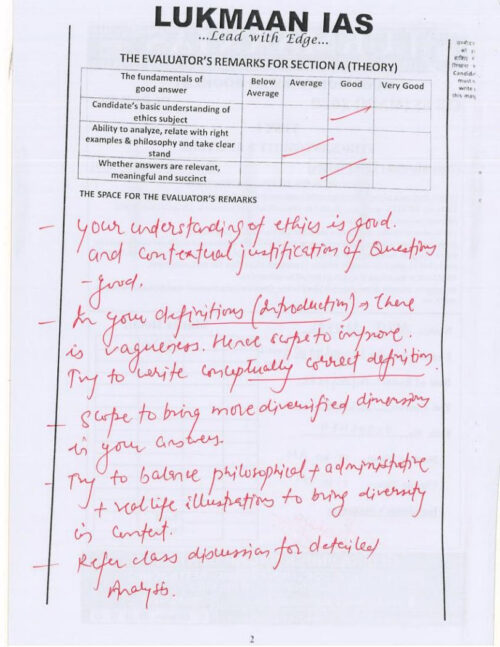 LUKMAAN IAS
...Lead with Edge...
THE EVALUATOR'S REMARKS FOR SECTION A (THEORY)
The fundamentals of good answer | Below Average | Average | Good | Very Good
Candidate's basic understanding of ethics subject
Ability to analyze, relate with right examples & philosophy and take clear stand
Whether answers are relevant, meaningful and succinct
THE SPACE FOR THE EVALUATOR'S REMARKS
- Your understanding of ethics is good.
and contextual justification of Questions
- good.
- In your definitions (Introduction), there
is vagueness. Hence scope to improve.
Try to write conceptually correct definition.
- Scope to bring more diversified dimensions
in your answers.
- Try to balance philosophical + administrative
+ real life illustrations to bring diversity
in content.
- Refer class discussion for detailed
Analysis.
2